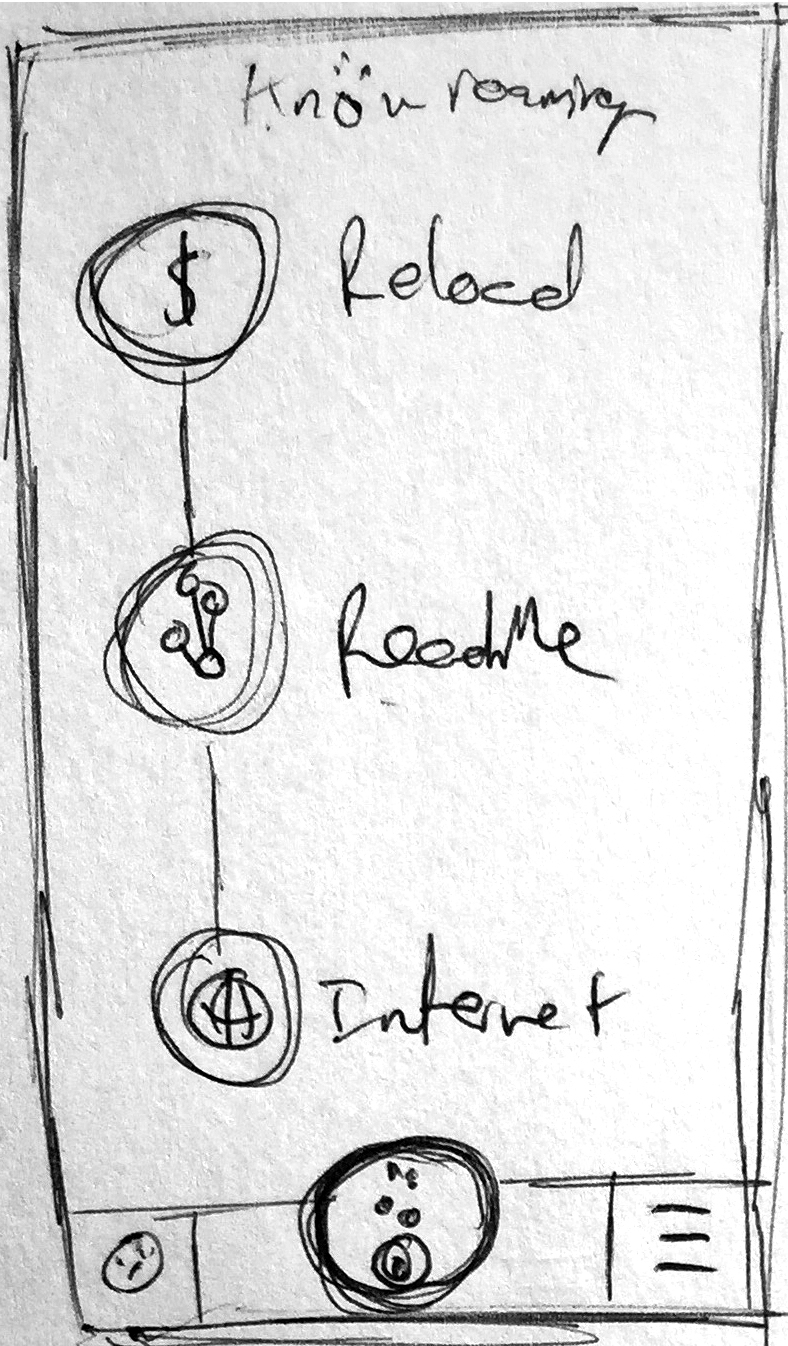 Knöw roaming
$ Reload
ReachMe
Internet